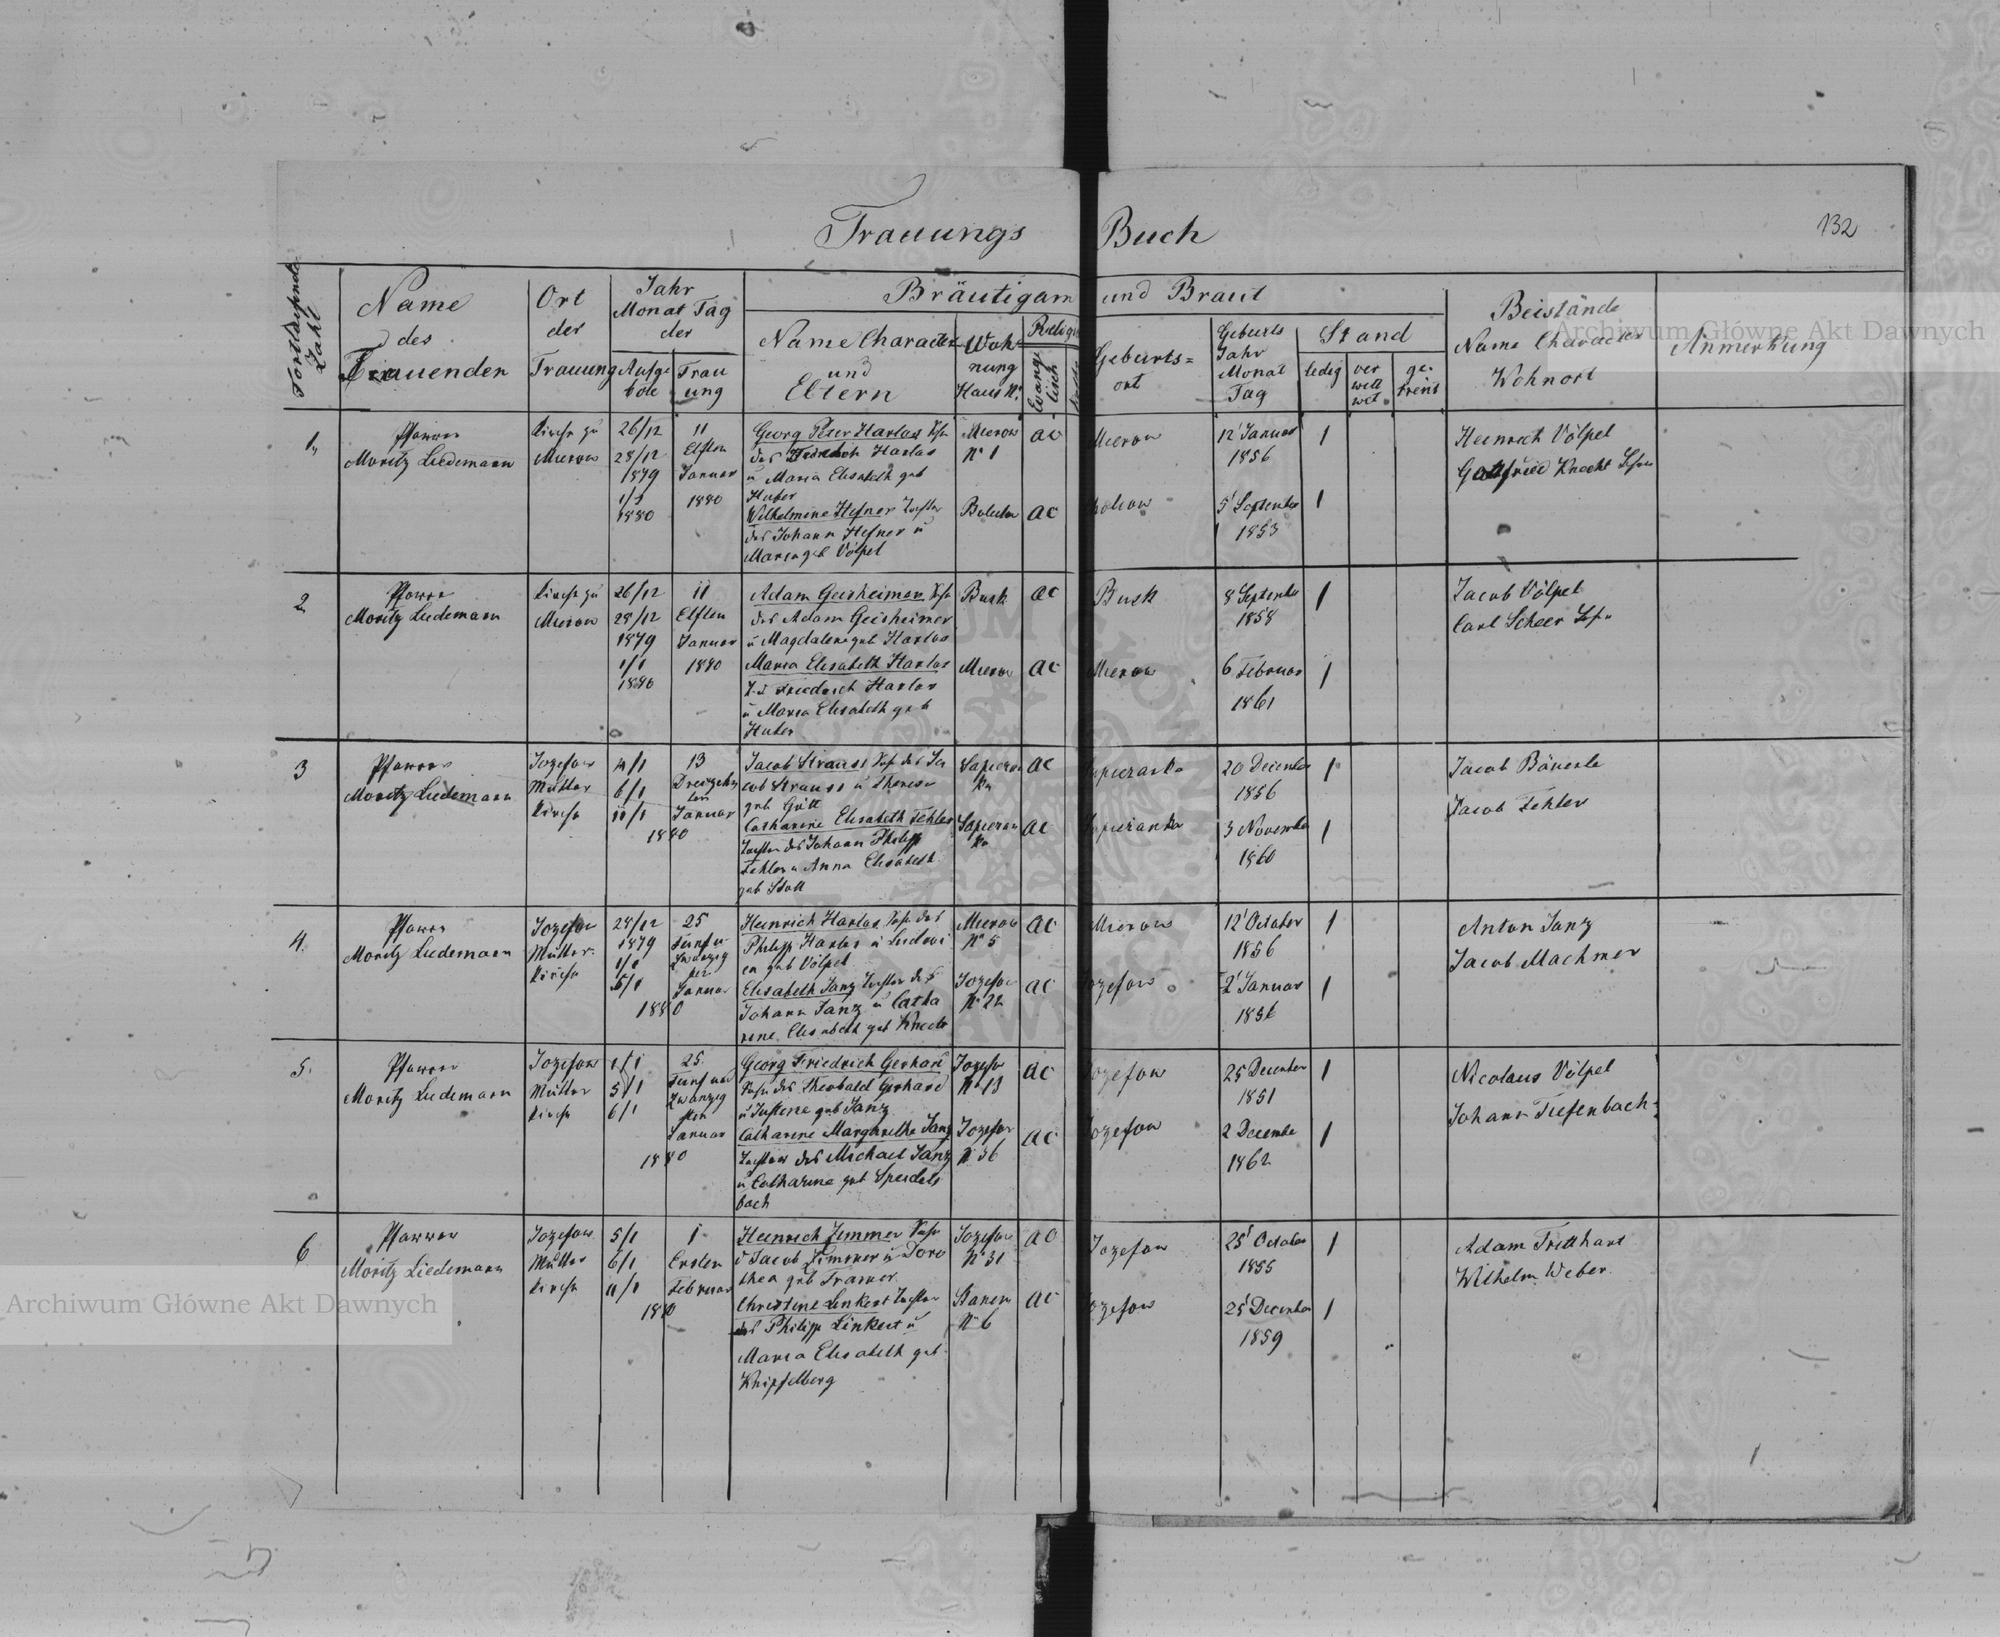 Trauungs Buch
132
Fortlaufende Zahl
Name des Trauenden
Ort der Trauung
Jahr Monat Tag der
Aufgebote
Trauung
Bräutigam und Braut
Name Character und Eltern
Wohnung Haus N.
Religion
Evangelisch
Geburtsort
Geburts Jahr Monat Tag
Stand
ledig
verwittwet
getrent
Beistände
Name Character
Wohnort
Anmerkung
1.
Pfarrer
Moritz Liedemann
Kirche zu
Mierow
26/12
28/12
1879
1/1
1880
11
Elften
Januar
1880
Georg Peter Harlos Sohn
des Friedrich Harlos
u Maria Elisabeth geb
Huber
Mierow
N° 1
ac
Mierow
12' Januar
1856
1
Wilhelmine Hefner Tochter
des Johann Hefner u
Maria geb Völpel
ac
5' September
1853
1
Heinrich Völpel
Gottfried Knecht
2
Pfarrer
Moritz Liedemann
Kirche zu
Mierow
26/12
28/12
1879
1/1
1880
11
Elften
Januar
1880
Adam Geisheimer Sohn
des Adam Geisheimer
u Magdalene geb Harlos
Busk
ac
Busk
8 September
1858
1
Maria Elisabeth Harlos
T. d Friedrich Harlos
u Maria Elisabeth geb
Huber
Mierow
ac
Mierow
6 Februar
1861
1
Jacob Völpel
Carl Scheer
3
Pfarrer
Moritz Liedemann
Jozefow
Mutter
Kirche
4/1
6/1
11/1
13
Dreizehn
ten
Januar
1880
Jacob Strauss Sohn des Ja
cob Strauss u Therese
geb Grütt
Sapiezan
ka
ac
Sapiezanka
20 December
1856
1
Catharine Elisabeth Fehler
Tochter des Johann Philipp
Fehler u Anna Elisabeth
geb Stoll
Sapiezan
ka
ac
Sapiezanka
3 November
1860
1
Jacob Bäuerle
Jacob Fehler
4.
Pfarrer
Moritz Liedemann
Jozefow
Mutter
Kirche
28/12
1879
1/1
5/1
25
Fünf u
Zwanzig
sten
Januar
1880
Heinrich Harlos Sohn des
Philipp Harlos u Ludovi
ca geb Völpel
Mierow
N° 5
ac
Mierow
12' October
1856
1
Elisabeth Janz Tochter des
Johann Janz u Catha
rine Elisabeth geb Knecht
Jozefow
N° 22
ac
Jozefow
2' Januar
1856
1
Anton Janz
Jacob Machmer
5.
Pfarrer
Moritz Liedemann
Jozefow
Mutter
Kirche
1/1
5/1
6/1
25
Fünf und
Zwanzig
sten
Januar
1880
Georg Friedrich Gerhard
Sohn des Theobald Gerhard
u Justine geb Janz
Jozefow
N° 13
ac
Jozefow
25 December
1851
1
Catharine Margarethe Janz
Tochter des Michael Janz
u Catharine geb Speidels
bach
Jozefow
N 36
ac
Jozefow
2 December
1862
1
Nicolaus Völpel
Johann Tiefenbach
6
Pfarrer
Moritz Liedemann
Jozefow
Mutter
Kirche
5/1
6/1
11/1
1
Ersten
Februar
1880
Heinrich Zimmer Sohn
d Jacob Zimmer u Doro
thea geb Framer
Jozefow
N° 31
ac
Jozefow
25' October
1855
1
Christine Linkert Tochter
des Philipp Linkert u
Maria Elisabeth geb.
Knipfelberg
Stanin
N° 6
ac
Jozefow
25' December
1859
1
Adam Tritthart
Wilhelm Weber
Archiwum Główne Akt Dawnych
Archiwum Główne Akt Dawnych